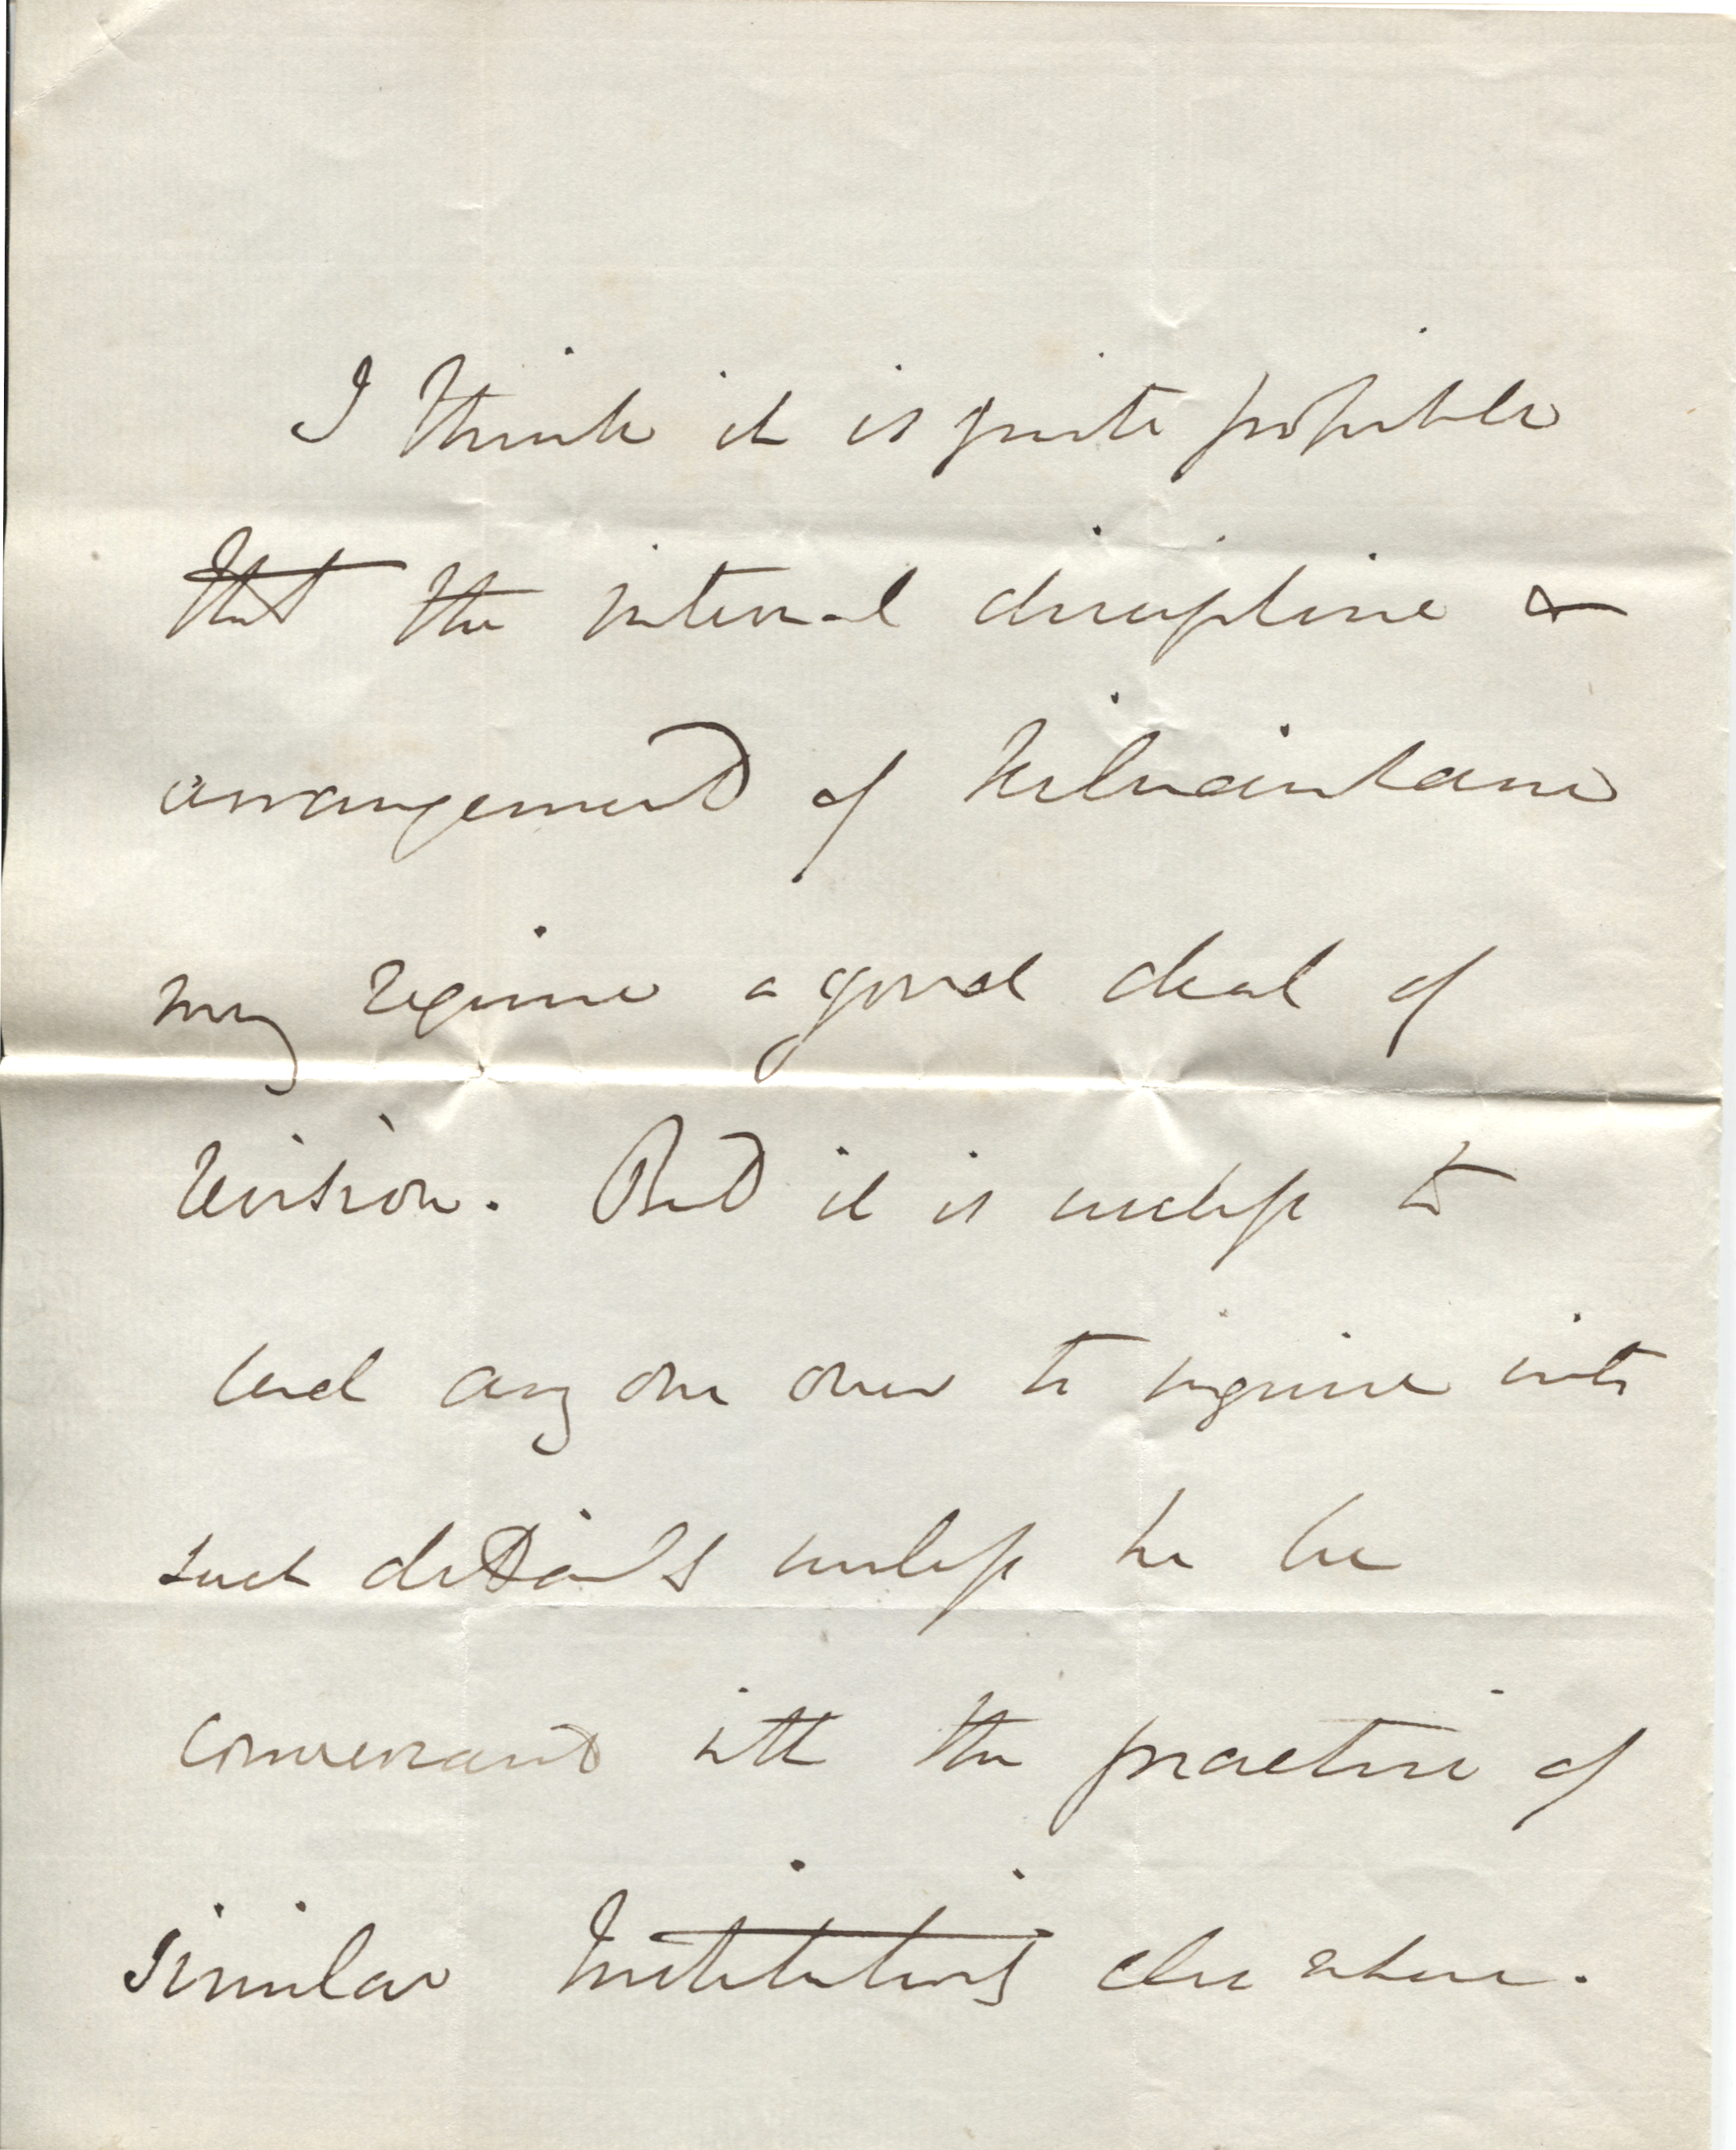 I think it is quite possible
that the internal discipline &
arrangement of Kilmainham
may require a good deal of
revision. But it is useless to
send any one over to inquire into
such details unless he be
conversant with the practice of
similar Institutions elsewhere.